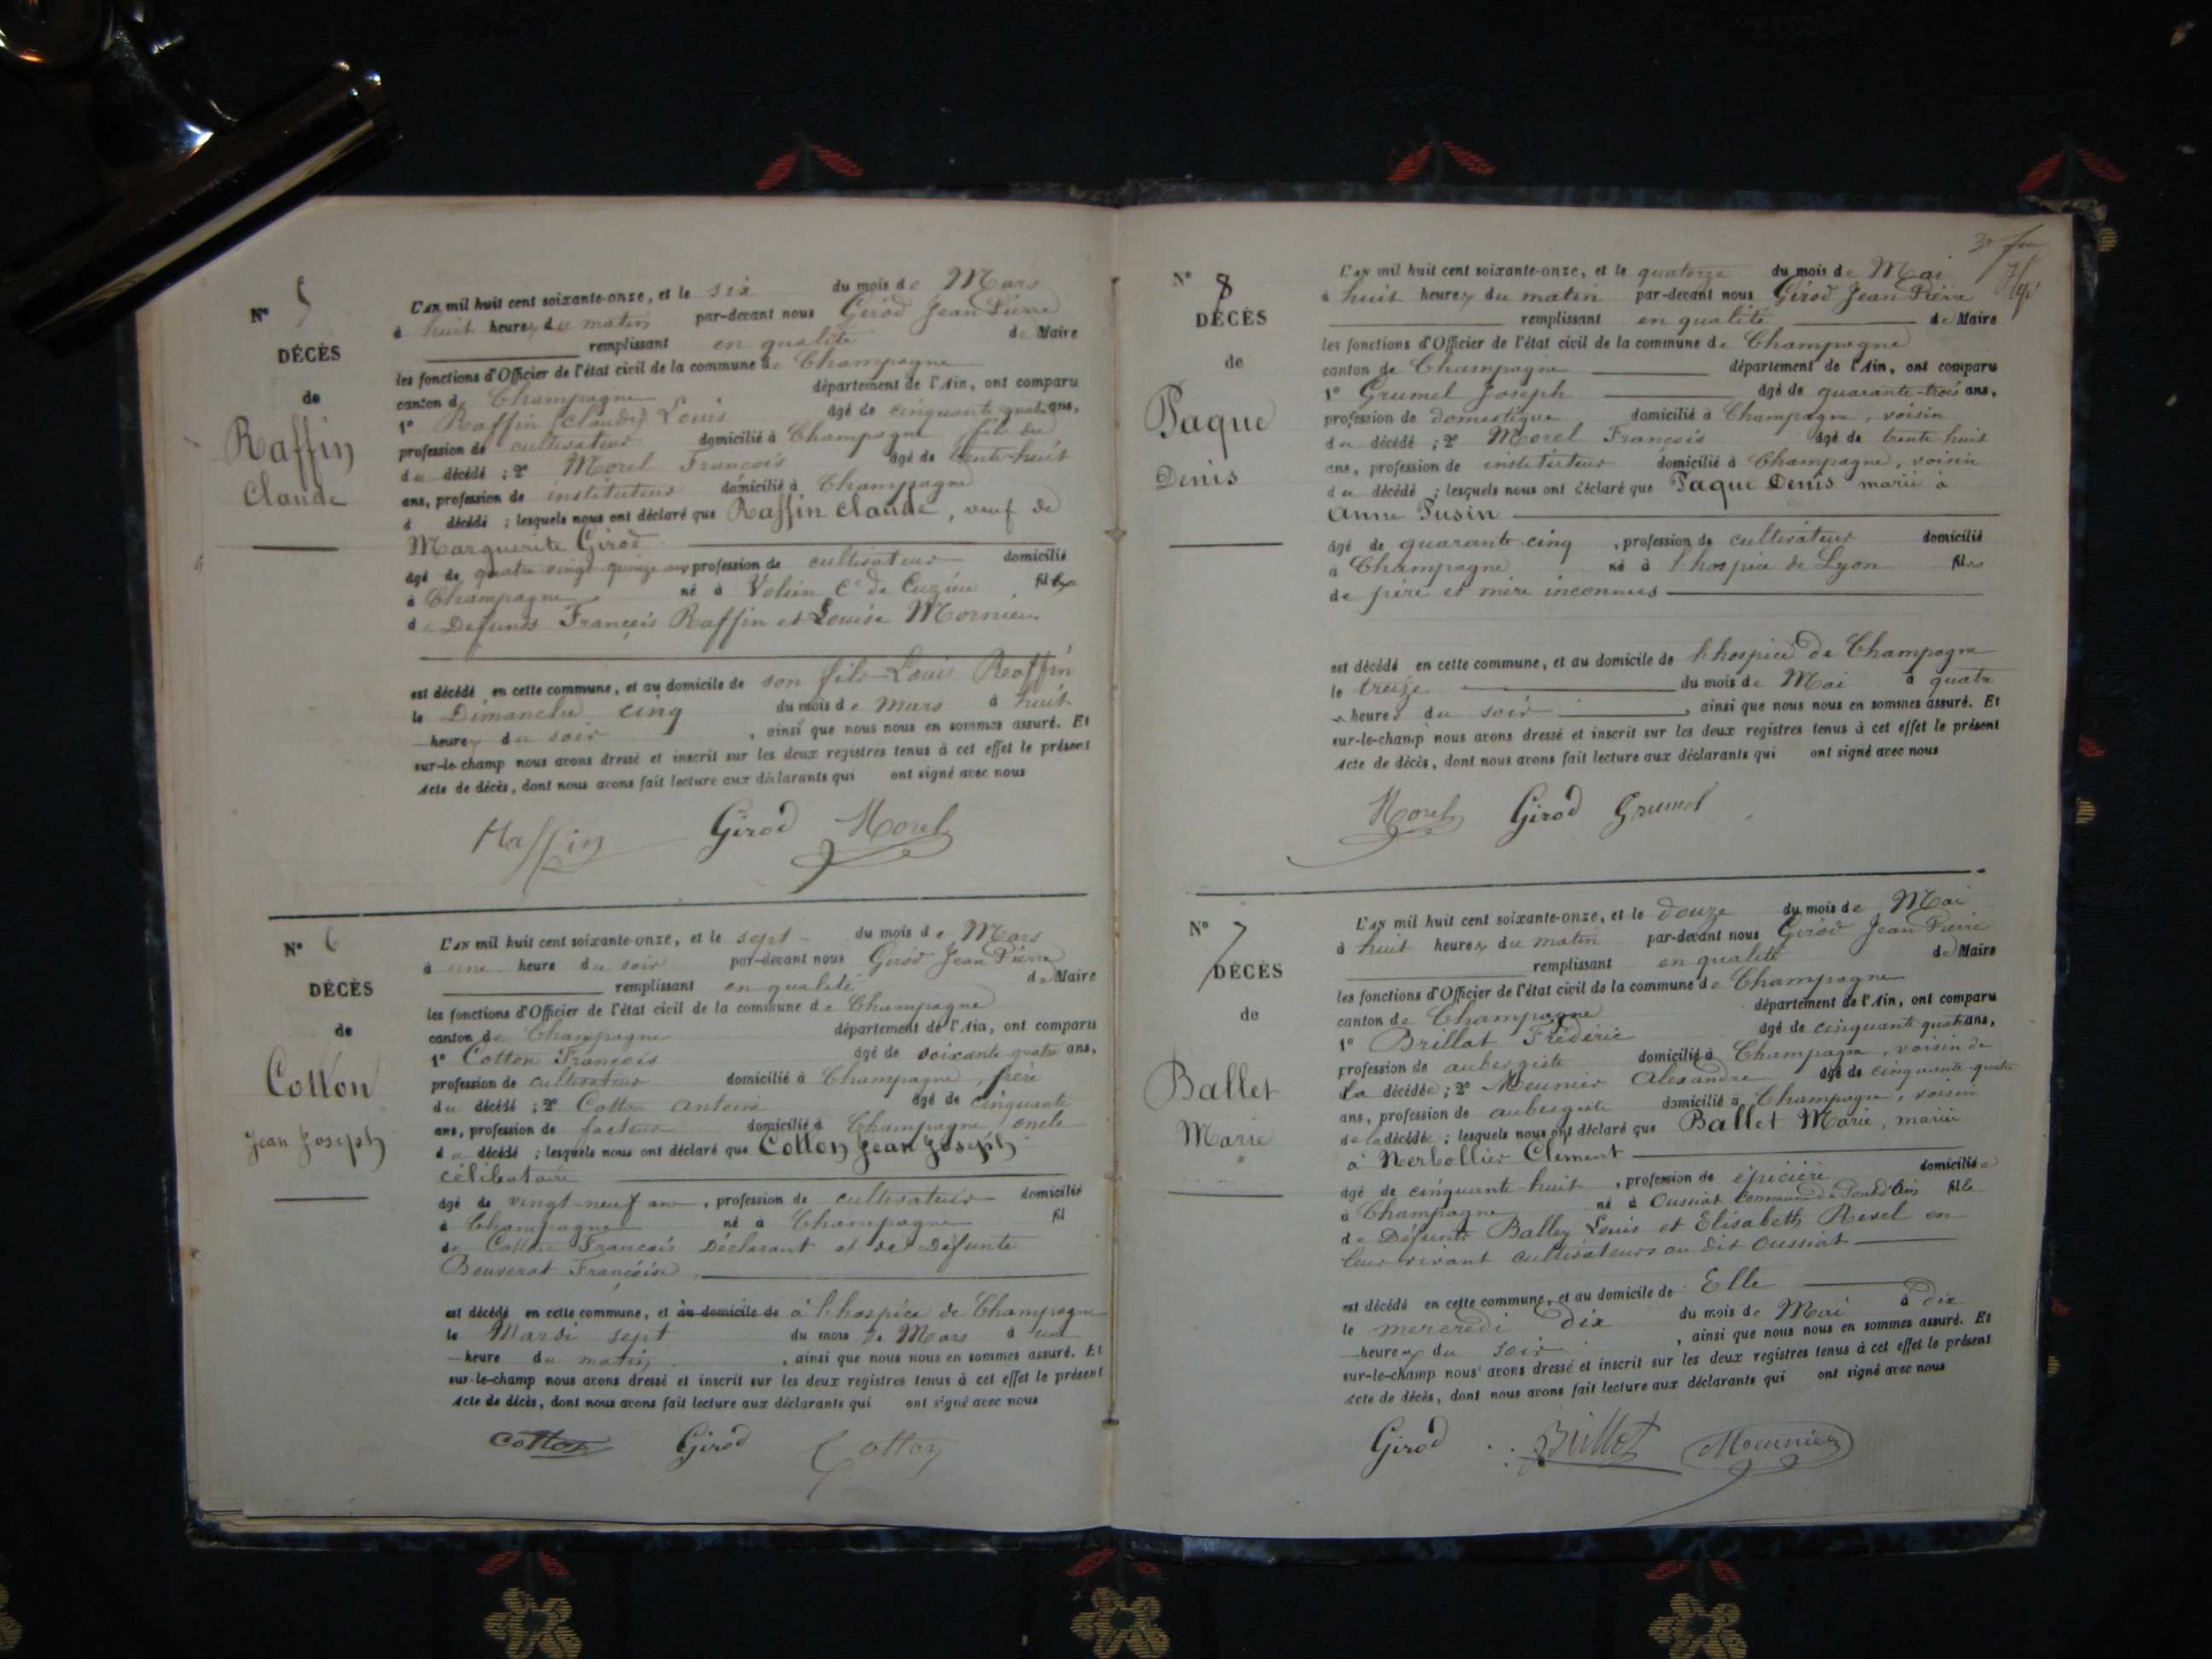 N° 5
DÉCÈS
de
Raffin
Claude
L'an mil huit cent soixante-onze, et le six du mois de Mars
à huit heures du matin par-devant nous Girod Jean Pierre
remplissant en qualité de Maire
les fonctions d'Officier de l'état civil de la commune de Champagne
canton de Champagne département de l'Ain, ont comparu
1° Raffin (Claude) Louis âgé de cinquante quatre ans,
profession de cultivateur domicilié à Champagne, fils du
du décédé ; 2° Morel François âgé de trente huit
ans, profession de instituteur domicilié à Champagne
d décédé ; lesquels nous ont déclaré que Raffin Claude, veuf de
Marguerite Girod
âgé de quatre vingt quinze ans profession de cultivateur domicilié
à Champagne né à Volien Cne de Lugieu fils
de Defunts François Raffin et Louise Mornieu
est décédé en cette commune, et au domicile de son fils Louis Raffin
le Dimanche cinq du mois de Mars à huit
heures du soir, ainsi que nous nous en sommes assuré. Et
sur-le-champ nous avons dressé et inscrit sur les deux registres tenus à cet effet le présent
Acte de décès, dont nous avons fait lecture aux déclarants qui ont signé avec nous
Raffin Girod Morel
N° 6
DÉCÈS
de
Cotton
Jean Joseph
L'an mil huit cent soixante-onze, et le sept du mois de Mars
à une heure du soir par-devant nous Girod Jean Pierre
remplissant en qualité de Maire
les fonctions d'Officier de l'état civil de la commune de Champagne
canton de Champagne département de l'Ain, ont comparu
1° Cotton François âgé de soixante quatre ans,
profession de cultivateur domicilié à Champagne, frère
du décédé ; 2° Cotton Antoine âgé de cinquante
ans, profession de facteur domicilié à Champagne, oncle
du décédé ; lesquels nous ont déclaré que Cotton Jean Joseph
célibataire
âgé de vingt-neuf ans, profession de cultivateur domicilié
à Champagne né à Champagne fil
de Cotton François Déclarant et de Défunte
Bouverat Françoise
est décédé en cette commune, et au domicile de à l'hospice de Champagne
le Mardi sept du mois de Mars à une
heure du matin, ainsi que nous nous en sommes assuré. Et
sur-le-champ nous avons dressé et inscrit sur les deux registres tenus à cet effet le présent
Acte de décès, dont nous avons fait lecture aux déclarants qui ont signé avec nous
Cotton Girod Cotton
N° 8
DÉCÈS
de
Paque
Denis
L'an mil huit cent soixante-onze, et le quatorze du mois de Mai
à huit heures du matin par-devant nous Girod Jean Pierre
remplissant en qualité de Maire
les fonctions d'Officier de l'état civil de la commune de Champagne
canton de Champagne département de l'Ain, ont comparu
1° Grumel Joseph âgé de quarante-trois ans,
profession de domestique domicilié à Champagne, voisin
du décédé ; 2° Morel François âgé de trente huit
ans, profession de instituteur domicilié à Champagne, voisin
du décédé ; lesquels nous ont déclaré que Paque Denis marié à
Anne Pusin
âgé de quarante cinq, profession de cultivateur domicilié
à Champagne né à l'hospice de Lyon fils
de père et mère inconnus
est décédé en cette commune, et au domicile de l'hospice de Champagne
le treize du mois de Mai à quatre
heures du soir, ainsi que nous nous en sommes assuré. Et
sur-le-champ nous avons dressé et inscrit sur les deux registres tenus à cet effet le présent
Acte de décès, dont nous avons fait lecture aux déclarants qui ont signé avec nous
Morel Girod Grumel
N° 7
DÉCÈS
de
Ballet
Marie
L'an mil huit cent soixante-onze, et le douze du mois de Mai
à huit heures du matin par-devant nous Girod Jean Pierre
remplissant en qualité de Maire
les fonctions d'Officier de l'état civil de la commune de Champagne
canton de Champagne département de l'Ain, ont comparu
1° Brillat Frédéric âgé de cinquante quatre ans,
profession de aubergiste domicilié à Champagne, voisin de
la décédée ; 2° Meunier Alexandre âgé de cinquante-quatre
ans, profession de aubergiste domicilié à Champagne, voisin
de la décédée ; lesquels nous ont déclaré que Ballet Marie, mariée
à Nerbollier Clement
âgé de cinquante-huit, profession de épicière domiciliée
à Champagne né à Oussiat commune de Pont d'Ain fille
de Défunts Balley Louis et Elisabeth Revel en
leur vivant cultivateurs au dit Oussiat
est décédé en cette commune, et au domicile de Elle
le mercredi dix du mois de Mai à dix
heures du soir, ainsi que nous nous en sommes assuré. Et
sur-le-champ nous avons dressé et inscrit sur les deux registres tenus à cet effet le présent
Acte de décès, dont nous avons fait lecture aux déclarants qui ont signé avec nous
Girod Brillat Meunier